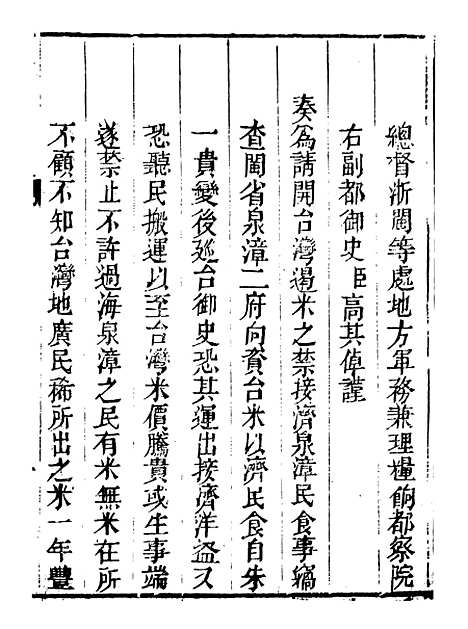 總督浙閩等處地方軍務兼理糧餉都察院
右副都御史臣高其倬謹
奏為請開台灣遏米之禁接濟泉漳民食事竊
查閩省泉漳二府向資台米以濟民食自朱
一貴變後廵台御史恐其運出接濟洋盜又
恐聽民搬運以至台灣米價騰貴或生事端
遂禁止不許過海泉漳之民有米無米在所
不顧不知台灣地廣民稀所出之米一年豐